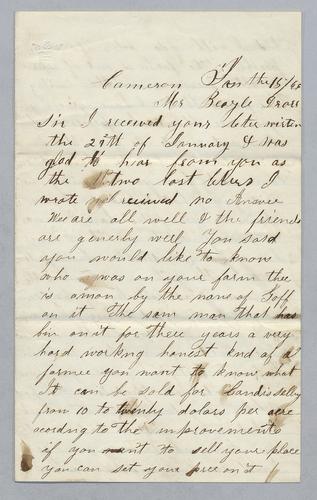 Cameron Jan the 15/68
Mr Beayle Dear
Sir I received your leter writen
the 29th of January & was
glad to hear from you as
the two last leters I
wrote received no Answer
We are all well & the friends
are generly well You said
you would like to know
who was on your farm thee
is a man by the name of Goff
on it The sam man that has
bin on it for there years a very
hard working honest kind of a
farmer you want to know what
It can be sold for Land is selling
from 10 to twenty dolars per acre
acording to the improvements
if you want to sell your place
you can set your price on it